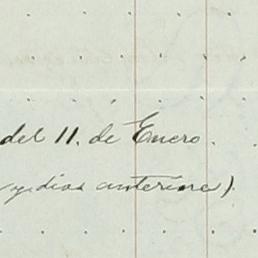 del 11. de Enero.
y dias anteriore).